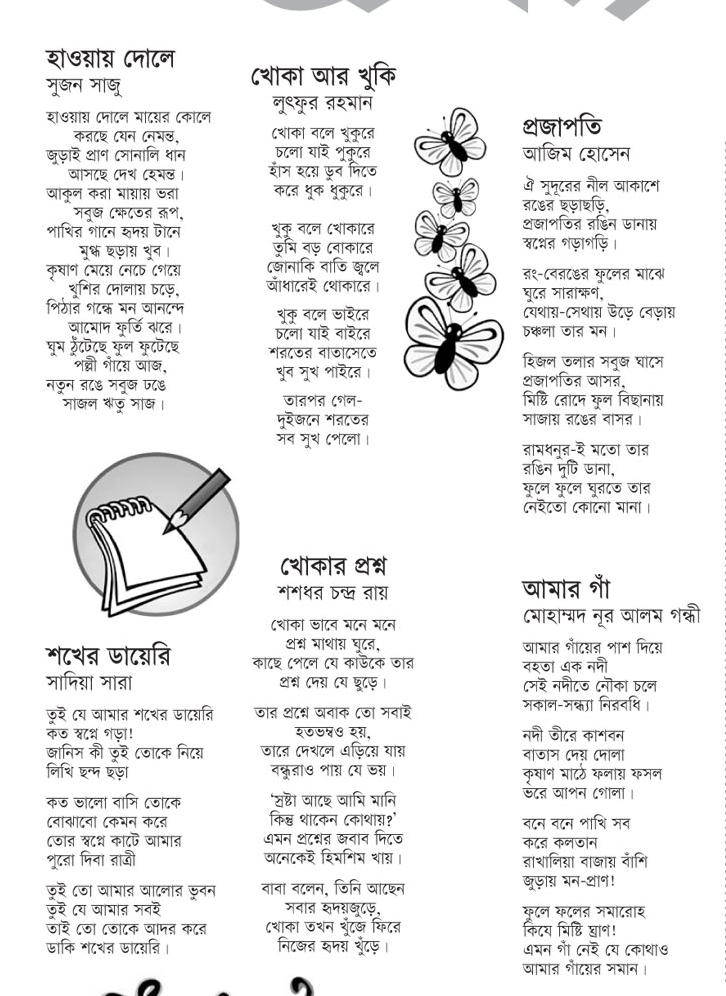 হাওয়ায় দোলে
সুজন সাজু
হাওয়ায় দোলে মায়ের কোলে
করছে যেন নেমন্ত,
জুড়াই প্রাণ সোনালি ধান
আসছে দেখ হেমন্ত।
আকুল করা মায়ায় ভরা
সবুজ ক্ষেতের রূপ,
পাখির গানে হৃদয় টানে
মুগ্ধ ছড়ায় খুব।
কৃষাণ মেয়ে নেচে গেয়ে
খুশির দোলায় চড়ে,
পিঠার গন্ধে মন আনন্দে
আমোদ ফুর্তি ঝরে।
ঘুম ঠুঁটেছে ফুল ফুটেছে
পল্লী গাঁয়ে আজ,
নতুন রঙে সবুজ ঢঙে
সাজল ঋতু সাজ।
খোকা আর খুকি
লুৎফুর রহমান
খোকা বলে খুকুরে
চলো যাই পুকুরে
হাঁস হয়ে ডুব দিতে
করে ধুক ধুকুরে।
খুকু বলে খোকারে
তুমি বড় বোকারে
জোনাকি বাতি জ্বলে
আঁধারেই থোকারে।
খুকু বলে ভাইরে
চলো যাই বাইরে
শরতের বাতাসেতে
খুব সুখ পাইরে।
তারপর গেল-
দুইজনে শরতের
সব সুখ পেলো।
প্রজাপতি
আজিম হোসেন
ঐ সুদূরের নীল আকাশে
রঙের ছড়াছড়ি,
প্রজাপতির রঙিন ডানায়
স্বপ্নের গড়াগড়ি।
রং-বেরঙের ফুলের মাঝে
ঘুরে সারাক্ষণ,
যেথায়-সেথায় উড়ে বেড়ায়
চঞ্চলা তার মন।
হিজল তলার সবুজ ঘাসে
প্রজাপতির আসর,
মিষ্টি রোদে ফুল বিছানায়
সাজায় রঙের বাসর।
রামধনুর-ই মতো তার
রঙিন দুটি ডানা,
ফুলে ফুলে ঘুরতে তার
নেইতো কোনো মানা।
শখের ডায়েরি
সাদিয়া সারা
তুই যে আমার শখের ডায়েরি
কত স্বপ্নে গড়া!
জানিস কী তুই তোকে নিয়ে
লিখি ছন্দ ছড়া
কত ভালো বাসি তোকে
বোঝাবো কেমন করে
তোর স্বপ্নে কাটে আমার
পুরো দিবা রাত্রী
তুই তো আমার আলোর ভুবন
তুই যে আমার সবই
তাই তো তোকে আদর করে
ডাকি শখের ডায়েরি।
খোকার প্রশ্ন
শশধর চন্দ্র রায়
খোকা ভাবে মনে মনে
প্রশ্ন মাথায় ঘুরে,
কাছে পেলে যে কাউকে তার
প্রশ্ন দেয় যে ছুড়ে।
তার প্রশ্নে অবাক তো সবাই
হতভম্বও হয়,
তারে দেখলে এড়িয়ে যায়
বন্ধুরাও পায় যে ভয়।
‘স্রষ্টা আছে আমি মানি
কিন্তু থাকেন কোথায়?’
এমন প্রশ্নের জবাব দিতে
অনেকেই হিমশিম খায়।
বাবা বলেন, তিনি আছেন
সবার হৃদয়জুড়ে,
খোকা তখন খুঁজে ফিরে
নিজের হৃদয় খুঁড়ে।
আমার গাঁ
মোহাম্মদ নূর আলম গন্ধী
আমার গাঁয়ের পাশ দিয়ে
বহতা এক নদী
সেই নদীতে নৌকা চলে
সকাল-সন্ধ্যা নিরবধি।
নদী তীরে কাশবন
বাতাস দেয় দোলা
কৃষাণ মাঠে ফলায় ফসল
ভরে আপন গোলা।
বনে বনে পাখি সব
করে কলতান
রাখালিয়া বাজায় বাঁশি
জুড়ায় মন-প্রাণ!
ফুলে ফলের সমারোহ
কিযে মিষ্টি ঘ্রাণ!
এমন গাঁ নেই যে কোথাও
আমার গাঁয়ের সমান।